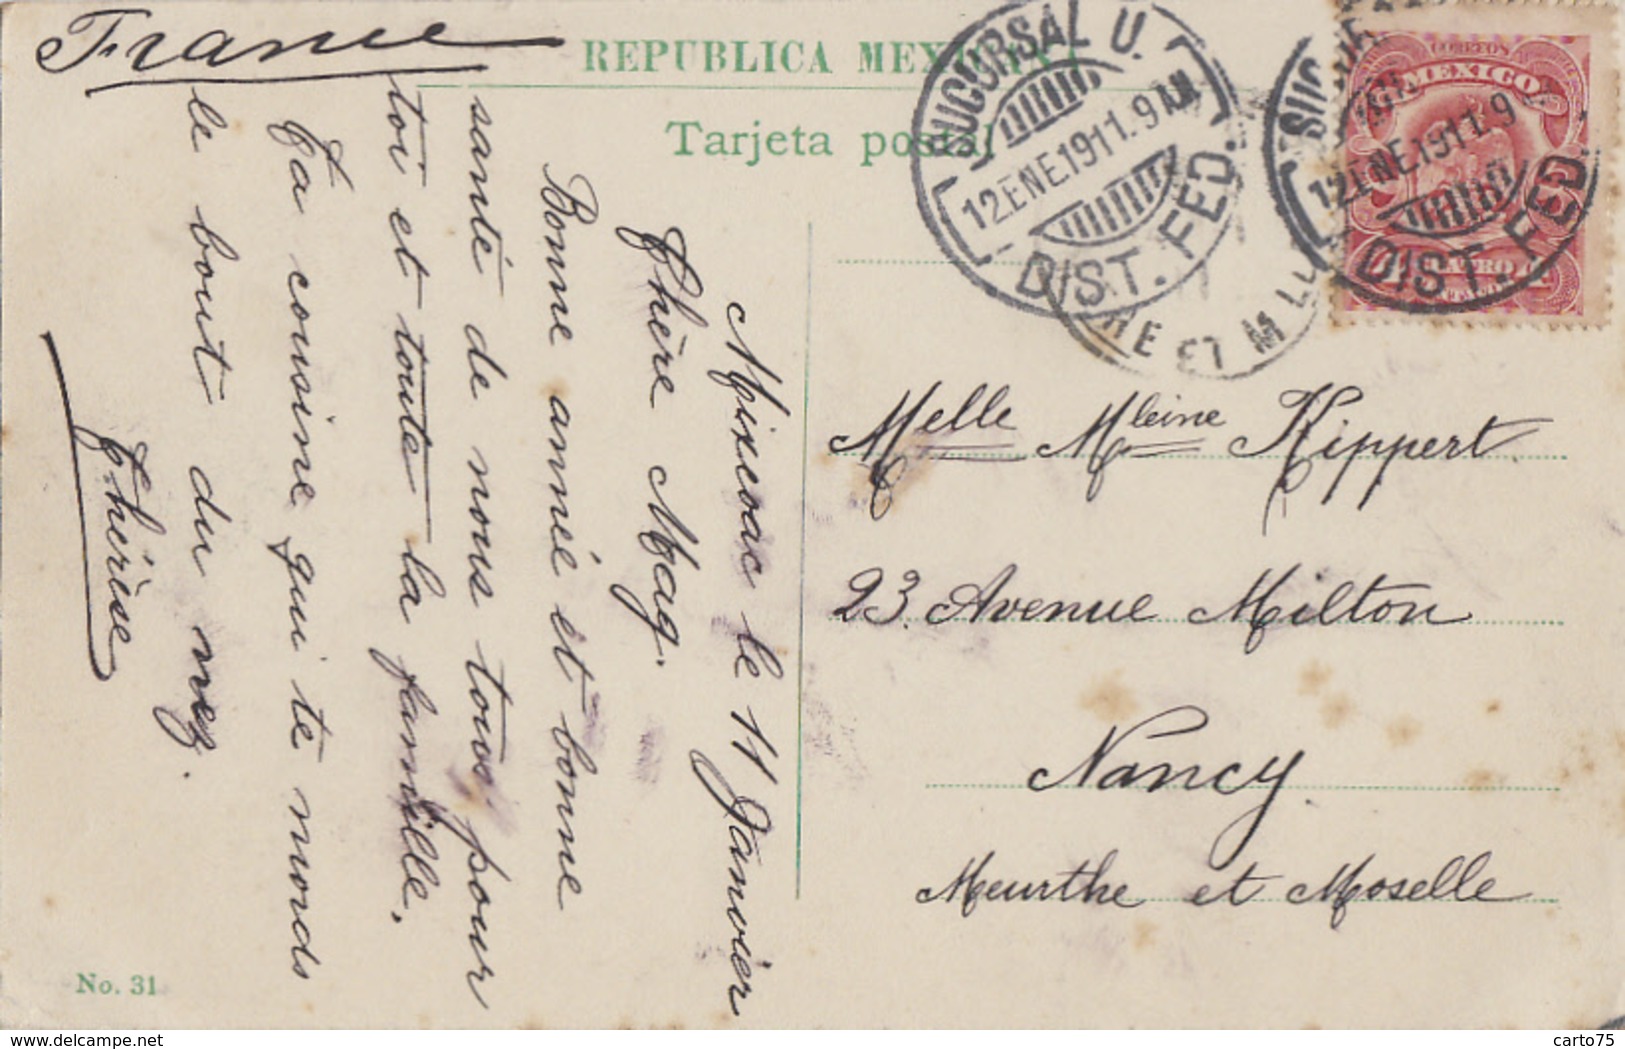 France
REPUBLICA MEXICANA
Tarjeta postal
SUCURSAL U.
12 ENE. 1911. 9 AM
DIST. FED.
SUCUR
12 ENE. 1911. 9
DIST. FED.
CORREOS
MEXICO
ET M
Mixcoac le 11 Janvier
Chère Mag.
Bonne année et bonne
santé de nous tous pour
toi et toute la famille.
Ta cousine qui te mords
le bout du nez.
Thérèse
Melle Mleine Kippert
23. Avenue Milton
Nancy
Meurthe et Moselle
No. 31
delcampe.net
carto75